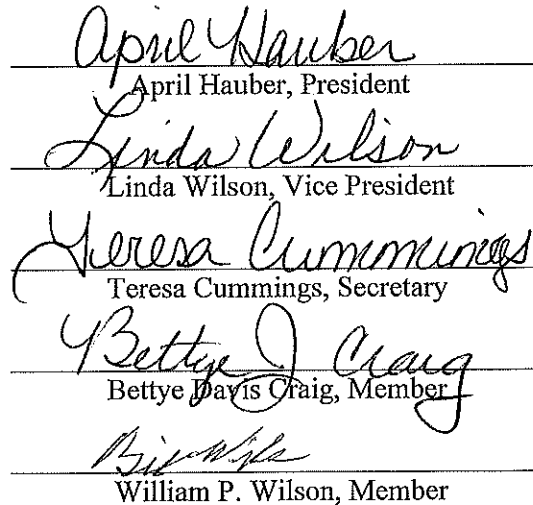 April Hauber
April Hauber, President
Linda Wilson
Linda Wilson, Vice President
Teresa Cummings
Teresa Cummings, Secretary
Bettye J Craig
Bettye Davis Craig, Member
Bill Wilson
William P. Wilson, Member